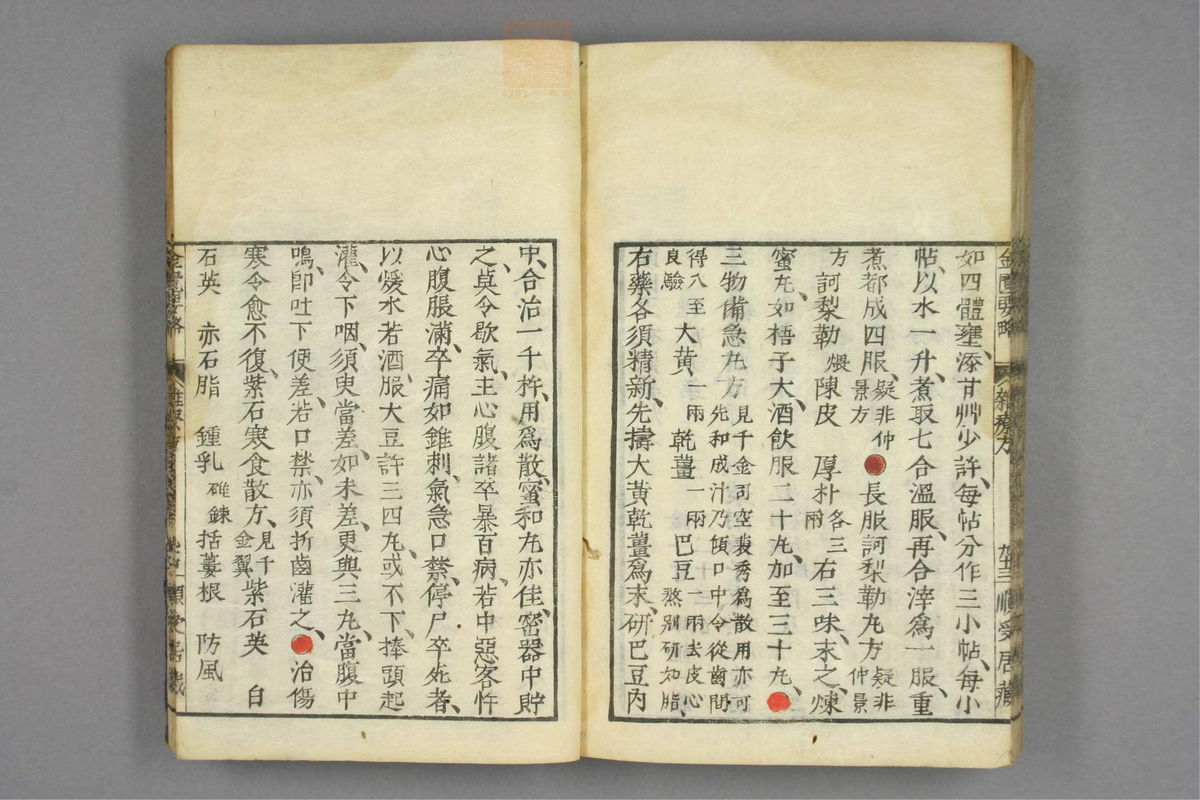 金匱要略 雜療方
如四體壅添甘艸少許每帖分作三小帖每小
帖以水一升煮取七合溫服再合滓爲一服重
煮都成四服疑非仲景方●長服訶梨勒丸方疑非仲景
方 訶梨勒煨 陳皮 厚朴各三兩 右三味末之煉
蜜丸如梧子大酒飲服二十丸加至三十丸●
三物備急丸方見千金司空裴秀爲散用亦可先和成汁乃傾口中令從齒間
得入至良驗 大黃一兩 乾薑一兩 巴豆一兩去皮心熬別研如脂
右藥各須精新先擣大黃乾薑爲末研巴豆內
中合治一千杵用爲散蜜和丸亦佳密器中貯
之莫令歇氣主心腹諸卒暴百病若中惡客忤
心腹脹滿卒痛如錐刺氣急口禁停尸卒死者
以煖水若酒服大豆許三四丸或不下捧頭起
灌令下咽須臾當差如未差更與三丸當腹中
鳴卽吐下便差若口禁亦須折齒灌之●治傷
寒令愈不復紫石寒食散方見千金翼 紫石英 白
石英 赤石脂 鍾乳碓鍊 括蔞根 防風